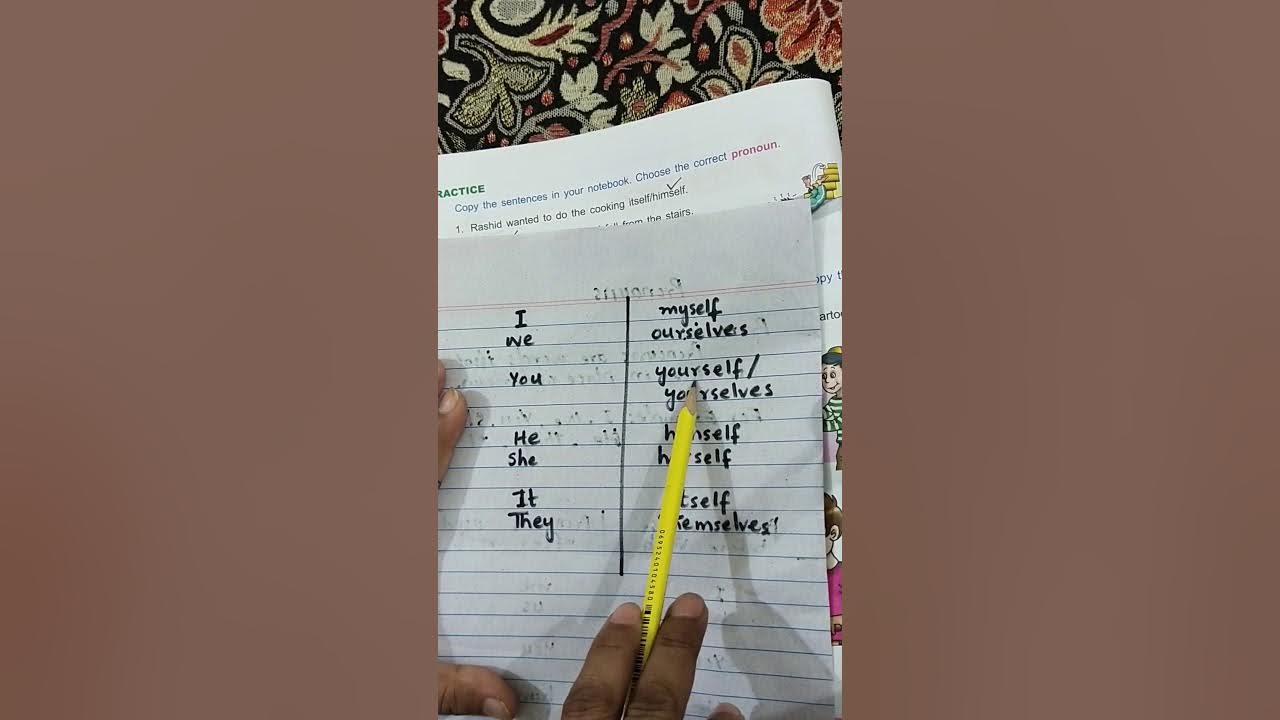 RACTICE
Copy the sentences in your notebook. Choose the correct pronoun.
1. Rashid wanted to do the cooking itself/himself.
from the stairs.
I myself
We ourselves
You yourself/
yourselves
He himself
She herself
It itself
They themselves
0695240104580